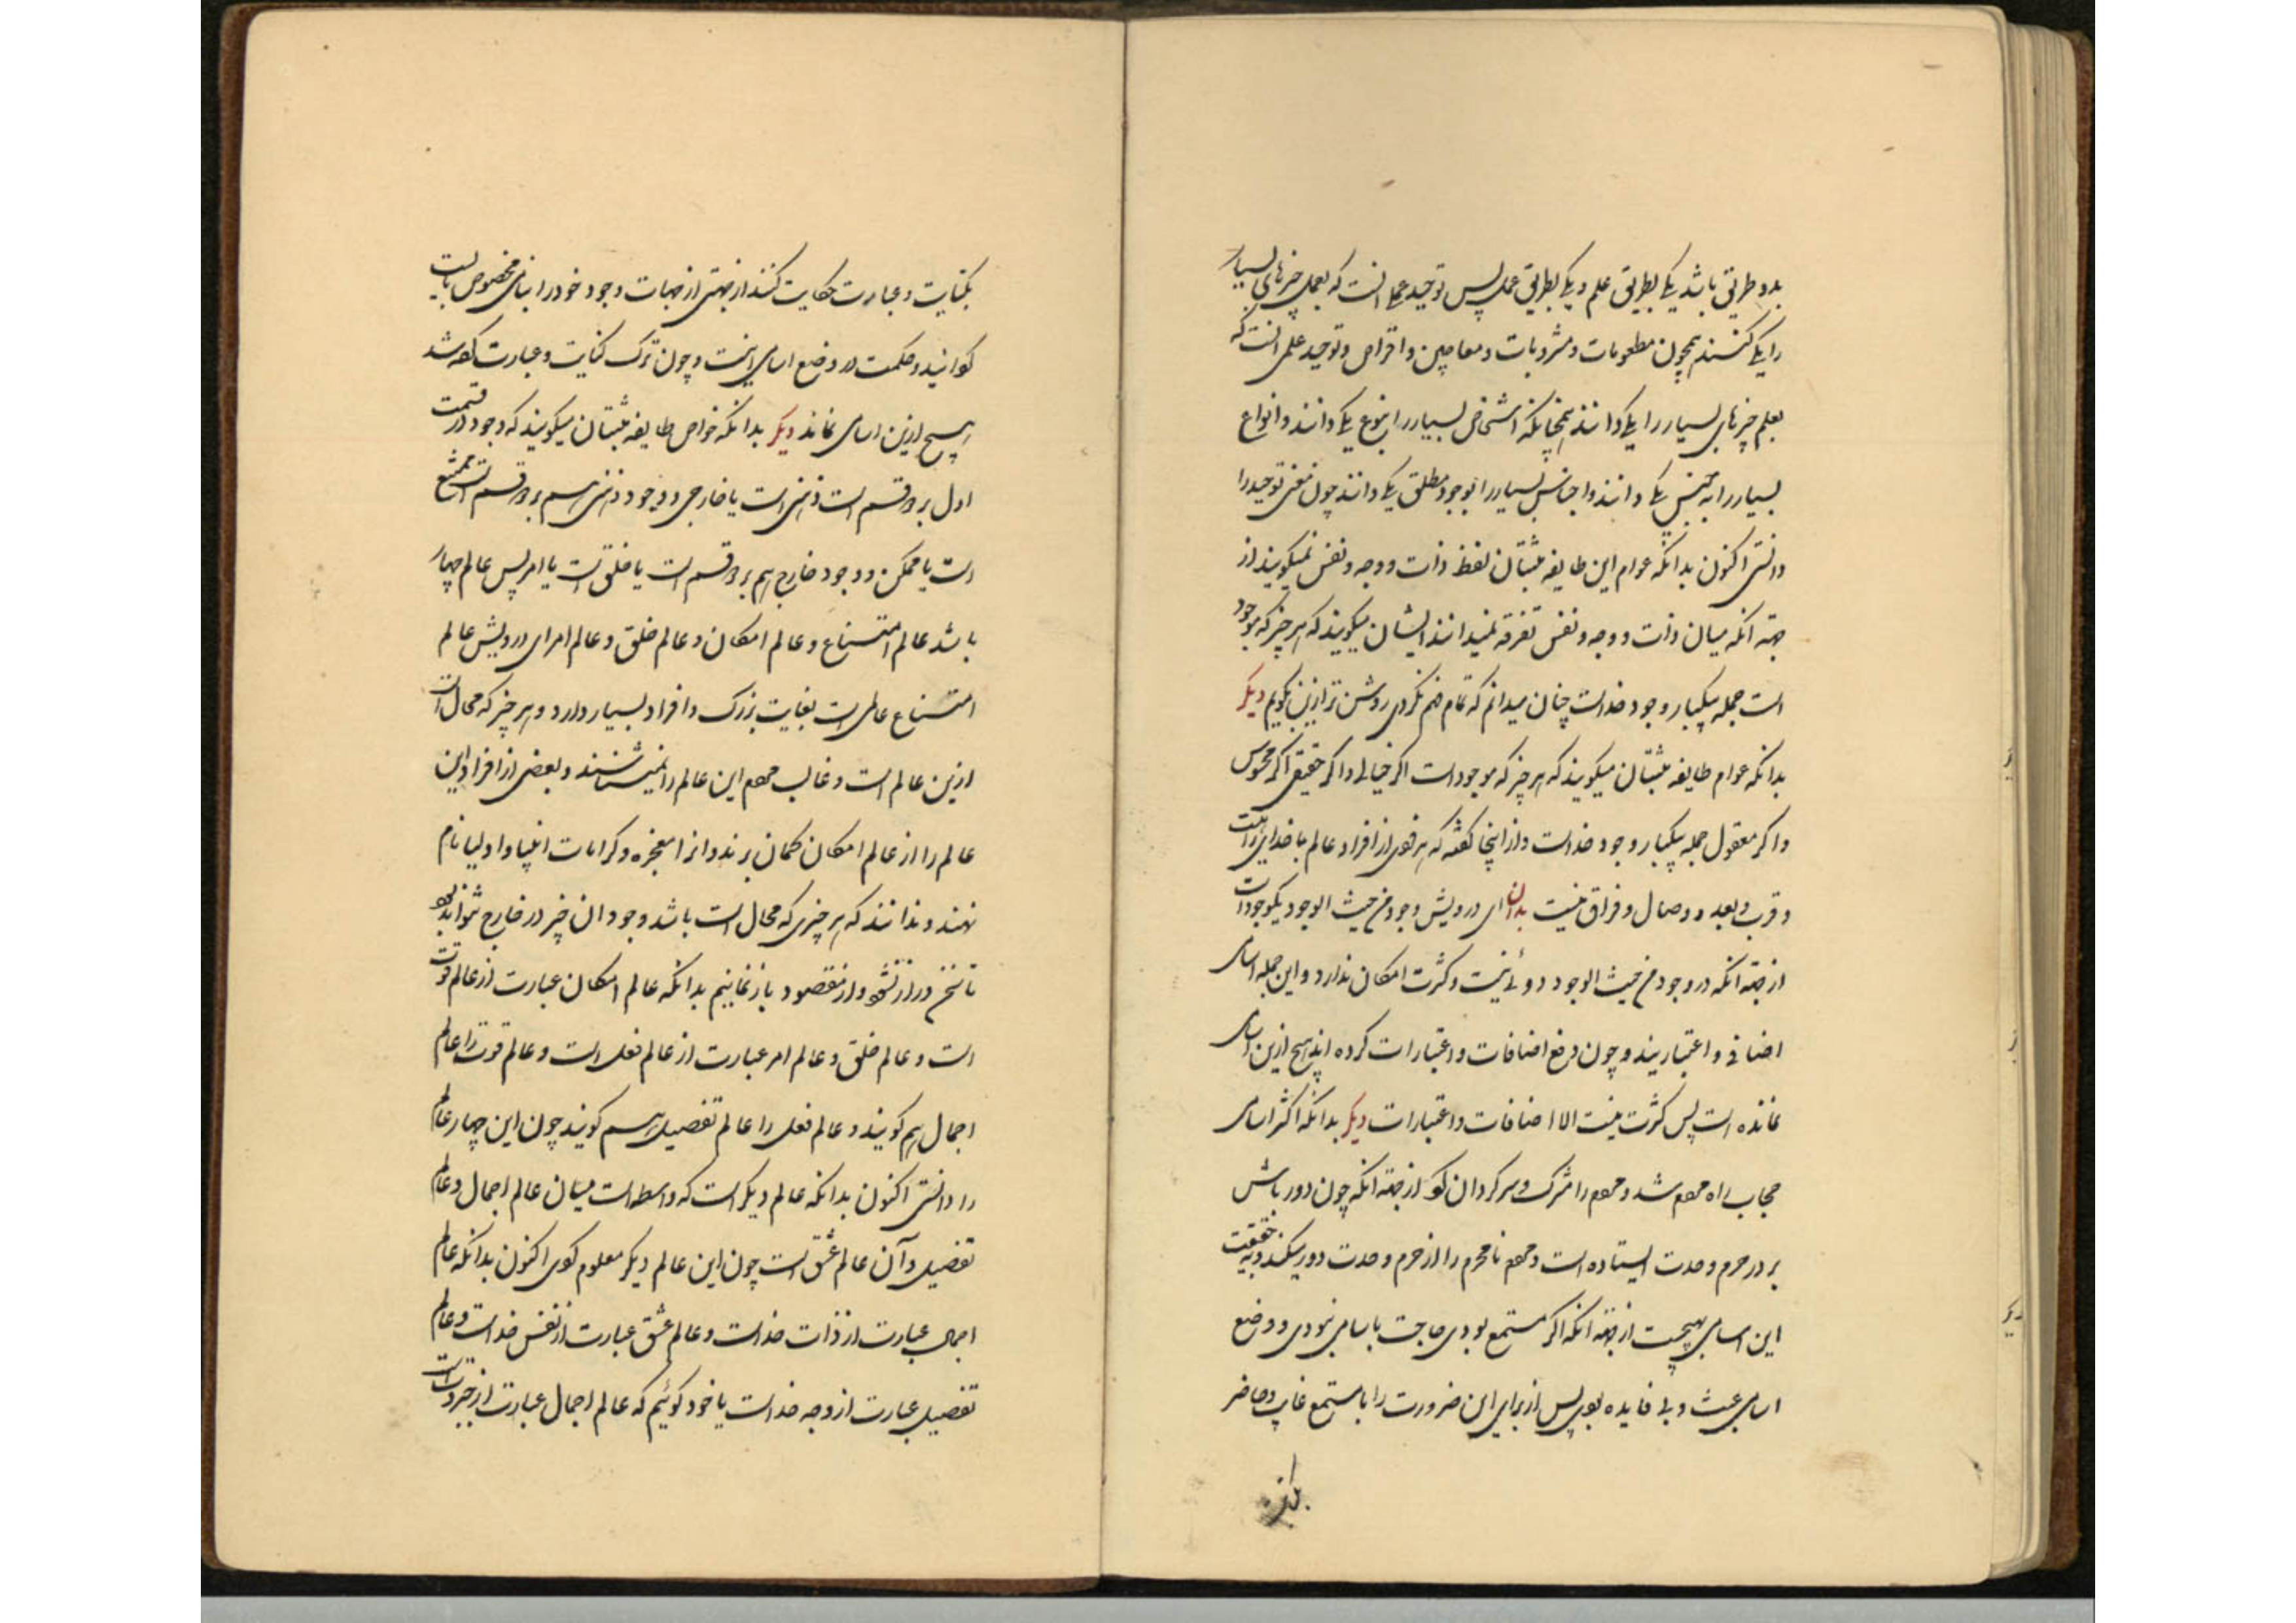 بدو طریق باشد یکی بطریق علم و یکی بطریق عمل پس توحید عملی آنست که بعمل چیزهای بسیار
را یکی کنند همچون مطعومات و مشروبات و معاجین و اقراص و توحید علمی آنست که
بعلم چیزهای بسیار را یکی دانند همچنانکه اشخاص بسیار را بنوع یکی دانند و انواع
بسیار را به جنس یکی دانند و اجناس بسیار را بوجود مطلق یکی دانند چون معنی توحید را
دانستی اکنون بدانکه عوام این طایفه مثبتان لفظ ذات و وجه و نفس نمیکویند از
جهة آنکه میان ذات و وجه و نفس تفرقه نمیدانند ایشان میکویند که هر چیز که موجود
است جمله بیکبار وجود خداست چنان میدانم که تمام فهم نکردی روشن تر ازین بکویم دیکر
بدانکه عوام طایفه مثبتان میکویند که هر چیز که موجود است اکر خیالی و اکر حقیقی اکر محسوس
و اکر معقول جمله بیکبار وجود خداست و از اینجا کفته که هر فردی از افراد عالم با خدای برابست
و قرب و بعد و وصال و فراق نیست بدان ای درویش وجود من حیث الوجود یکوجود است
از جهة آنکه در وجود من حیث الوجود دوئی نیست و کثرت امکان ندارد و این جمله اسامی
اضافی و اعتباریند و چون رفع اضافات و اعتبارات کرده اند هیچ ازین اسامی
نمانده است پس کثرت نیست الا اضافات و اعتبارات دیکر بدانکه اکثر اسامی
حجاب راه مردم شد و مردم را مشرک و سرکردان کرد از جهة آنکه چون دورباش
بر در حرم وحدت ایستاده است و مردم نامحرم را از حرم وحدت دور میکند و بحقیقت
این اسامی هیچست از جهة آنکه اکر مستمع بودی حاجت باسامی نبودی و وضع
اسامی عبث و بی فایده بودی پس از برای این ضرورت را با مستمع غایب و حاضر
بکنایت و عبارت حکایت کنند از جهتی از جهات وجود خود را بنامی مخصوص بایست
کردانید و حکمت در وضع اسامی اینست و چون ترک کنایت و عبارت کفته شد
هیچ ازین اسامی نماند دیکر بدانکه خواص طایفه مثبتان میکویند که وجود در قسمت
اول بر دو قسم است ذهنی است یا خارجی و وجود ذهنی هم بر دو قسم است ممتنع
است یا ممکن و وجود خارج هم بر دو قسم است یا خلقی است یا امر پس عالم چهار
باشد عالم امتناع و عالم امکان و عالم خلق و عالم امر ای درویش عالم
امتناع عالمی است بغایت بزرک و افراد بسیار دارد و هر چیز که محال است
ازین عالم است و غالب مردم این عالم را نمیشناسند و بعضی از افراد این
عالم را از عالم امکان کمان برند و آنرا معجزه و کرامات انبیا و اولیا نام
نهند و ندانند که هر چیزی که محال است باشد وجود آن چیز در خارج نتواند بود
تا سخن دراز نشود و از مقصود باز نمانیم بدانکه عالم امکان عبارت از عالم قوت
است و عالم خلق و عالم امر عبارت از عالم فعل است و عالم قوت را عالم
اجمال هم کویند و عالم فعل را عالم تفصیل هم کویند چون این چهار عالم
را دانستی اکنون بدانکه عالم دیکر است که واسطه است میان عالم اجمال و عالم
تفصیل و آن عالم عشق است چون این عالم دیکر معلوم کردی اکنون بدانکه عالم
اجمال عبارت از ذات خداست و عالم عشق عبارت از نفس خداست و عالم
تفصیل عبارت از وجه خداست یا خود کوئیم که عالم اجمال عبارت از جبروتست